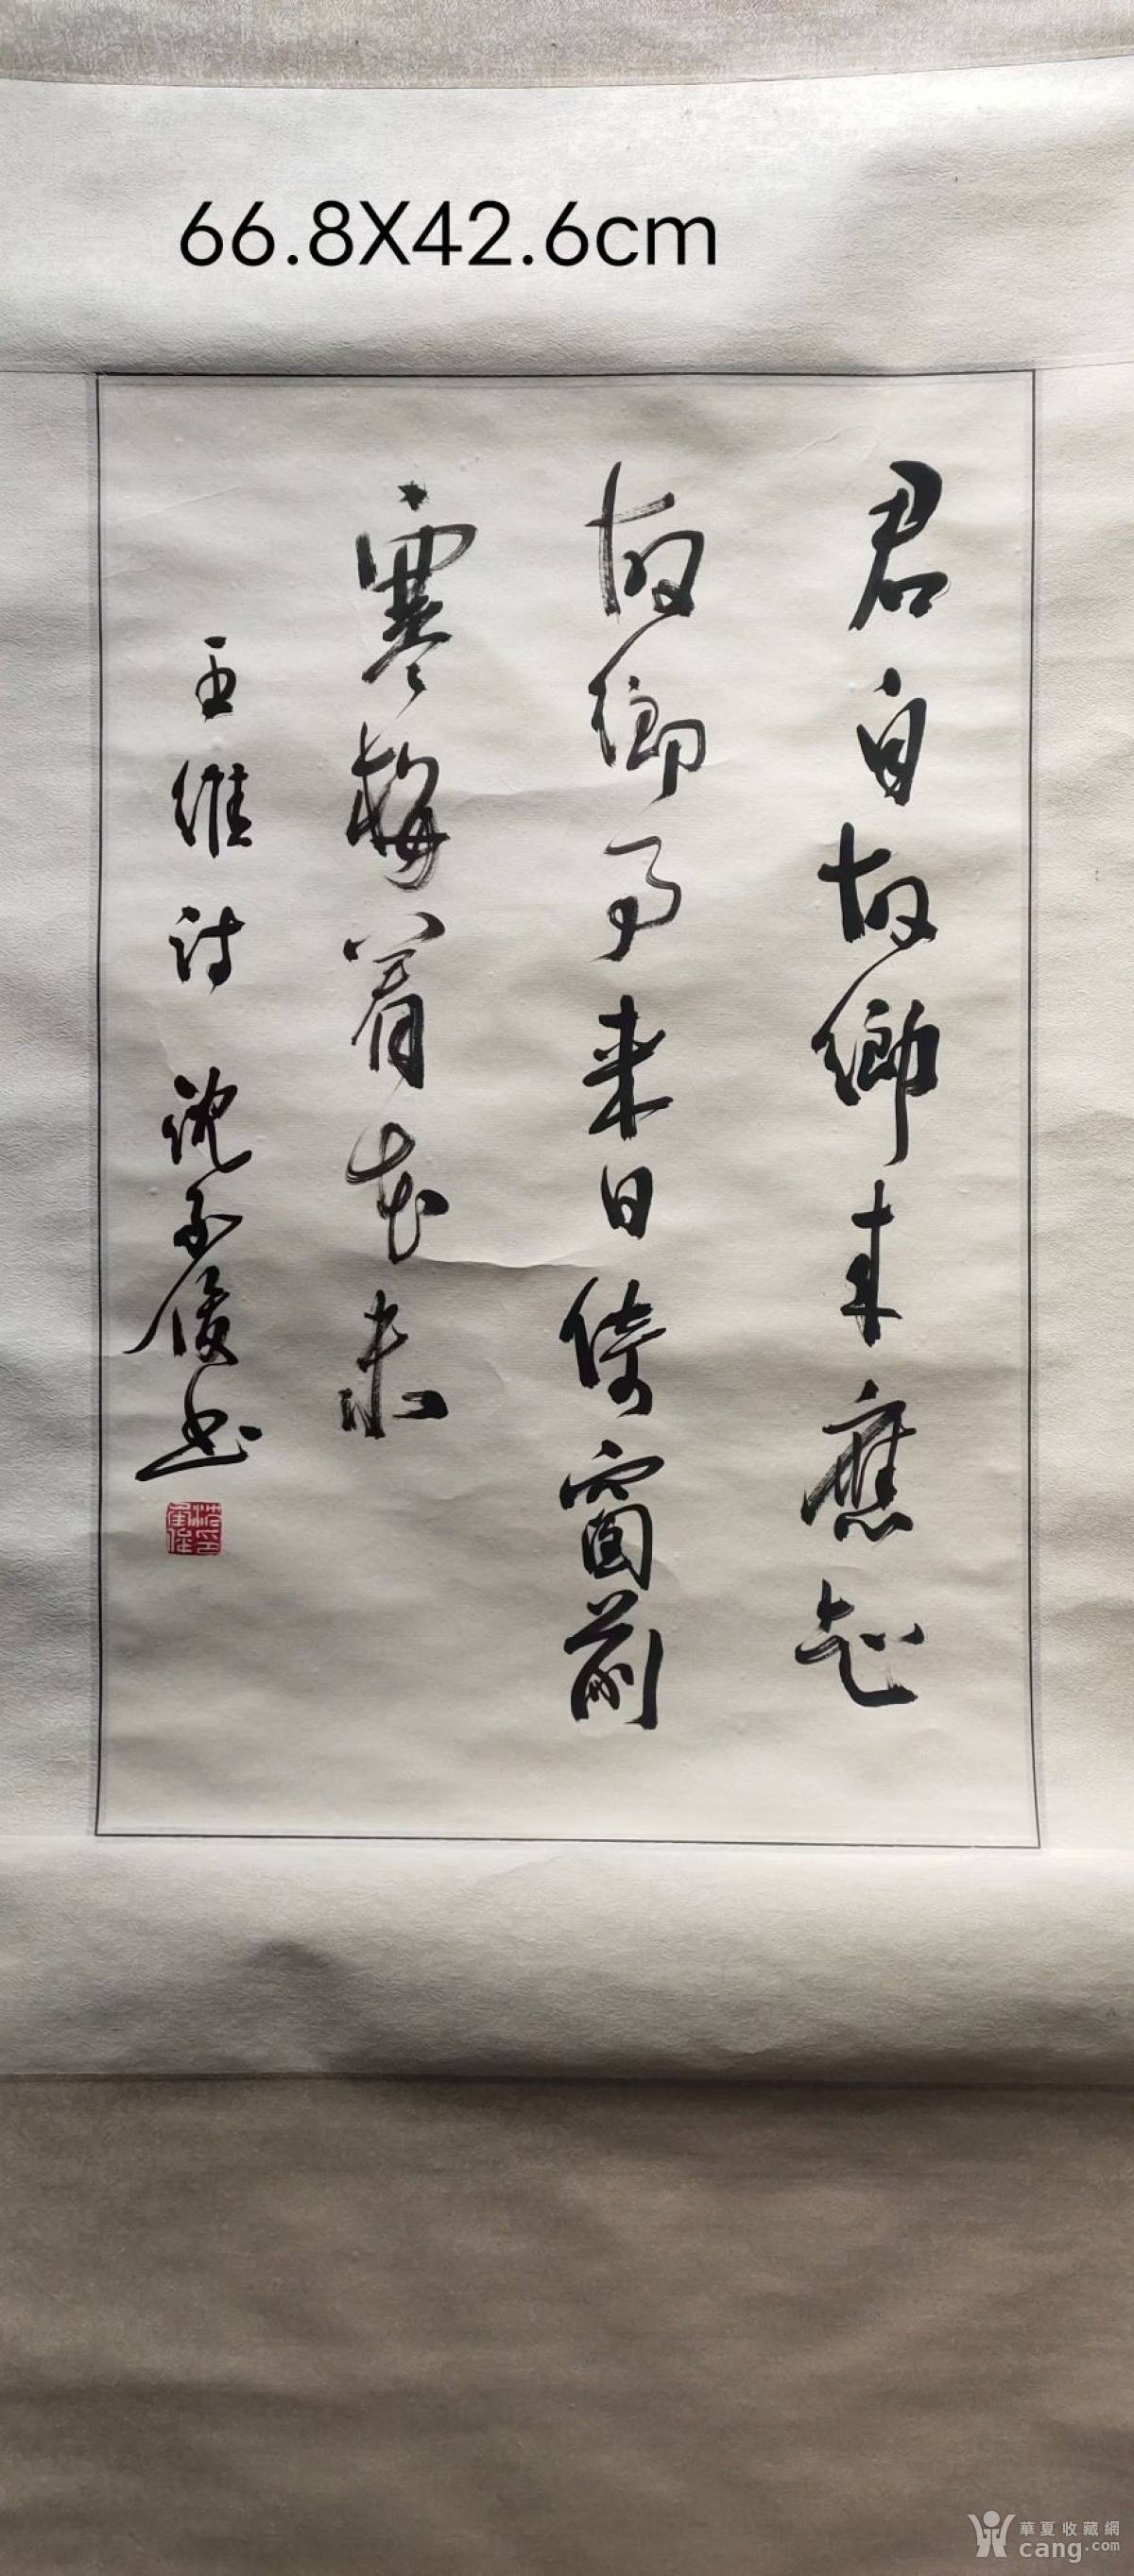 66.8X42.6cm
君自故鄉来應知
故鄉事来日倚窗前
寒梅着花未
王維詩 沈子俊书
華夏收藏網
cang.com